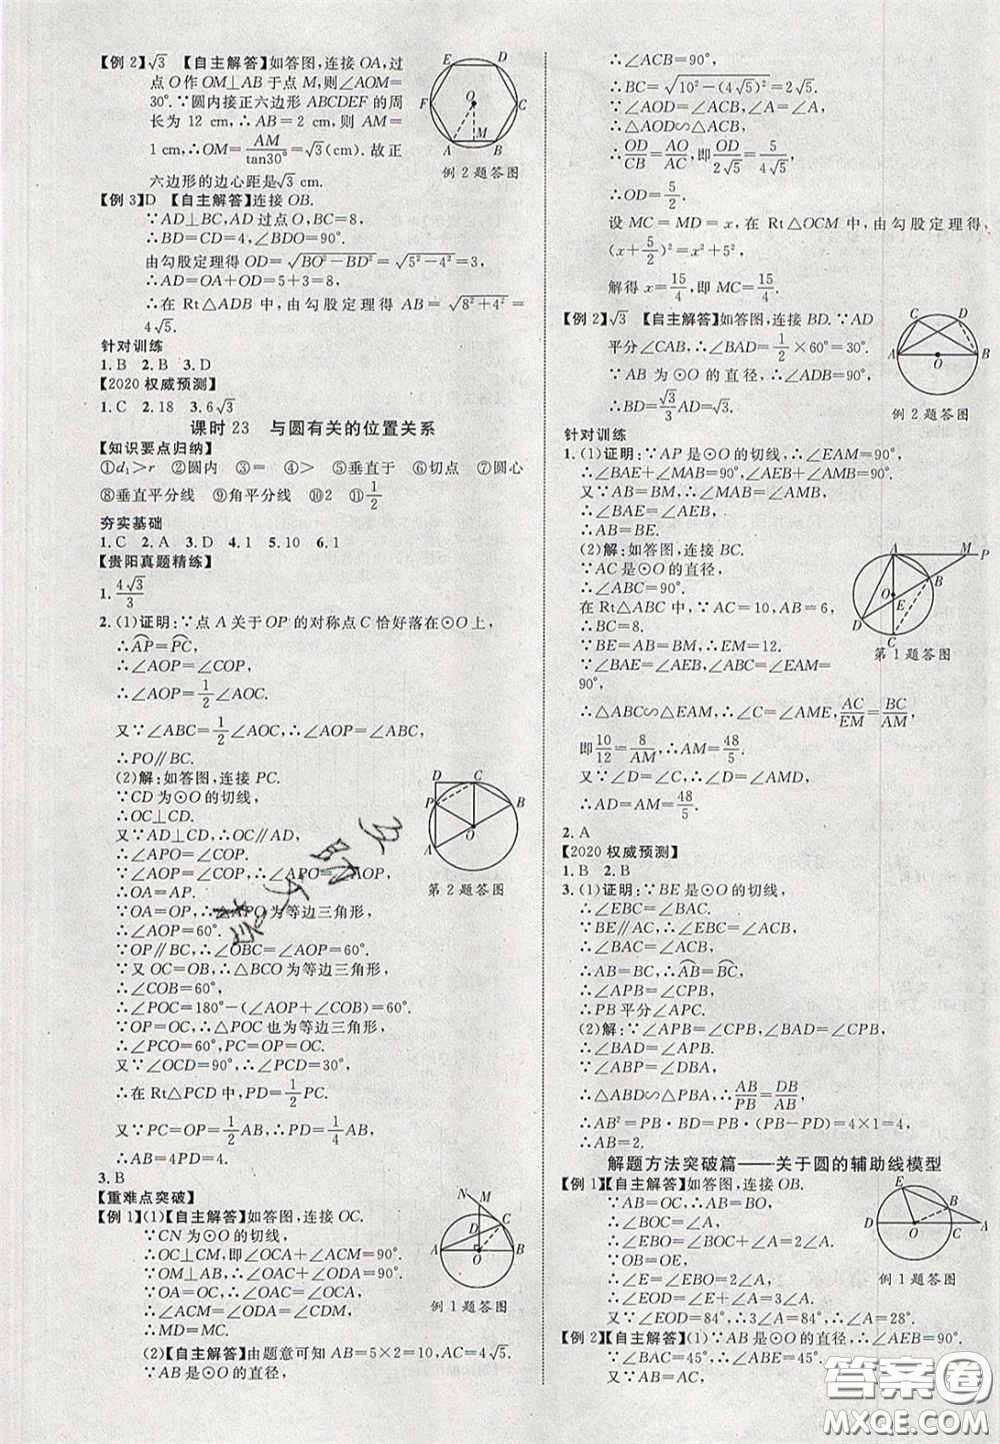 【例 2】√3 【自主解答】如答图，连接 OA，过
点 O 作 OM⊥AB 于点 M，则∠AOM=
30°.∵圆内接正六边形 ABCDEF 的周
长为 12 cm，则 AB=2 cm，则 AM=
1 cm，∴OM=AM/tan30°=√3(cm). 故正
六边形的边心距是√3 cm.
E D F O C A M B
例 2 题答图
【例 3】D 【自主解答】连接 OB.
∵AD⊥BC，AD 过点 O，BC=8，
∴BD=CD=4，∠BDO=90°.
由勾股定理得 OD=√(BO²-BD²)=√(5²-4²)=3.
∴AD=OA+OD=5+3=8.
∴在 Rt△ADB 中，由勾股定理得 AB=√(8²+4²)=
4√5.
针对训练
1. B 2. B 3. D
【2020 权威预测】
1. C 2. 18 3. 6√3
课时 23 与圆有关的位置关系
【知识要点归纳】
①d₁>r ②圆内 ③= ④= ⑤垂直于 ⑥切点 ⑦圆心
⑧垂直平分线 ⑨角平分线 ⑩2 ⑪1/2
夯实基础
1. C 2. A 3. D 4. 1 5. 10 6. 1
【贵阳真题精练】
1. 4√3/3
2. (1)证明：∵点 A 关于 OP 的对称点 C 恰好落在⊙O 上，
∴AP=PC，
∴∠AOP=∠COP，
∴∠AOP=1/2∠AOC.
又∵∠ABC=1/2∠AOC，∴∠AOP=∠ABC，
∴PO∥BC.
(2)解：如答图，连接 PC.
∵CD 为⊙O 的切线，
∴OC⊥CD.
又∵AD⊥CD，∴OC∥AD，
∴∠APO=∠COP.
∵∠AOP=∠COP，
∴∠APO=∠AOP，
∴OA=AP.
∵OA=OP，∴△AOP 为等边三角形，
∴∠AOP=60°.
∵OP∥BC，∴∠OBC=∠AOP=60°.
又∵OC=OB，∴△BCO 为等边三角形，
∴∠COB=60°，
∴∠POC=180°-(∠AOP+∠COB)=60°.
∵OP=OC，∴△POC 也为等边三角形，
∴∠PCO=60°，PC=OP=OC.
又∵∠OCD=90°，∴∠PCD=30°.
∴在 Rt△PCD 中，PD=1/2PC.
又∵PC=OP=1/2AB，∴PD=1/4AB，
∴AB=4PD=4.
D C P B A O
第 2 题答图
3. B
【重难点突破】
【例 1】(1)【自主解答】如答图，连接 OC.
∵CN 为⊙O 的切线，
∴OC⊥CM，即∠OCA+∠ACM=90°.
∵OM⊥AB，∴∠OAC+∠ODA=90°.
∵OA=OC，∴∠OAC=∠OCA，
∴∠ACM=∠ODA=∠CDM，
∴MD=MC.
N M D C A O B
例 1 题答图
(2)【自主解答】由题意可知 AB=5×2=10，AC=4√5.
∵AB 是⊙O 的直径，
∴∠ACB=90°，
∴BC=√(10²-(4√5)²)=2√5.
∵∠AOD=∠ACB，∠A=∠A，
∴△AOD∽△ACB，
∴OD/CB=AO/AC，即OD/2√5=5/4√5，
∴OD=5/2.
设 MC=MD=x，在 Rt△OCM 中，由勾股定理得，
(x+5/2)²=x²+5²，
解得 x=15/4，即 MC=15/4.
【例 2】√3 【自主解答】如答图，连接 BD.∵AD
平分∠CAB，∴∠BAD=1/2×60°=30°.
∵AB 为⊙O 的直径，∴∠ADB=90°，
∴BD=√3/3AD=√3.
C D A O B
例 2 题答图
针对训练
1. (1)证明：∵AP 是⊙O 的切线，∴∠EAM=90°，
∴∠BAE+∠MAB=90°，∠AEB+∠AMB=90°.
又∵AB=BM，∴∠MAB=∠AMB，
∴∠BAE=∠AEB，
∴AB=BE.
(2)解：如答图，连接 BC.
∵AC 是⊙O 的直径，
∴∠ABC=90°.
在 Rt△ABC 中，∵AC=10，AB=6，
∴BC=8.
∵BE=AB=BM，∴EM=12.
∵∠BAE=∠AEB，∠EAM=∠ABC=
90°，
∴△ABC∽△EAM，∴∠C=∠AME，AC/EM=BC/AM，
即10/12=8/AM，∴AM=48/5.
又∵∠D=∠C，∴∠D=∠AMD，
∴AD=AM=48/5.
A M P B O E D C
第 1 题答图
2. A
【2020 权威预测】
1. B 2. B
3. (1)证明：∵BE 是⊙O 的切线，
∴∠EBC=∠BAC.
∵BE∥AC，∴∠EBC=∠ACB，
∴∠BAC=∠ACB，
∴AB=BC，∴AB=BC，
∴PB 平分∠APC.
(2)解：∵∠APB=∠CPB，∠BAD=∠CPB，
∴∠BAD=∠APB.
又∵∠ABP=∠DBA，
∴△ABD∽△PBA，∴AB/PB=DB/AB，
∴AB²=PB·BD=PB·(PB-PD)=4×1=4，
∴AB=2.
解题方法突破篇——关于圆的辅助线模型
【例 1】【自主解答】如答图，连接 OB.
∵AB=OC，∴AB=BO，
∴∠BOC=∠A，
∴∠EBO=∠BOC+∠A=2∠A.
又∵OB=OE，
∴∠E=∠EBO=2∠A，
∴∠EOD=∠E+∠A=3∠A.
又∵∠EOD=84°，∴3∠A=84°，∴∠A=28°.
E B D O C A
例 1 题答图
【例 2】【自主解答】(1)∵AB 是⊙O 的直径，∴∠AEB=90°.
∵∠BAC=45°，∴∠ABE=45°.
又∵AB=AC，
答案圈
MXQE.COM